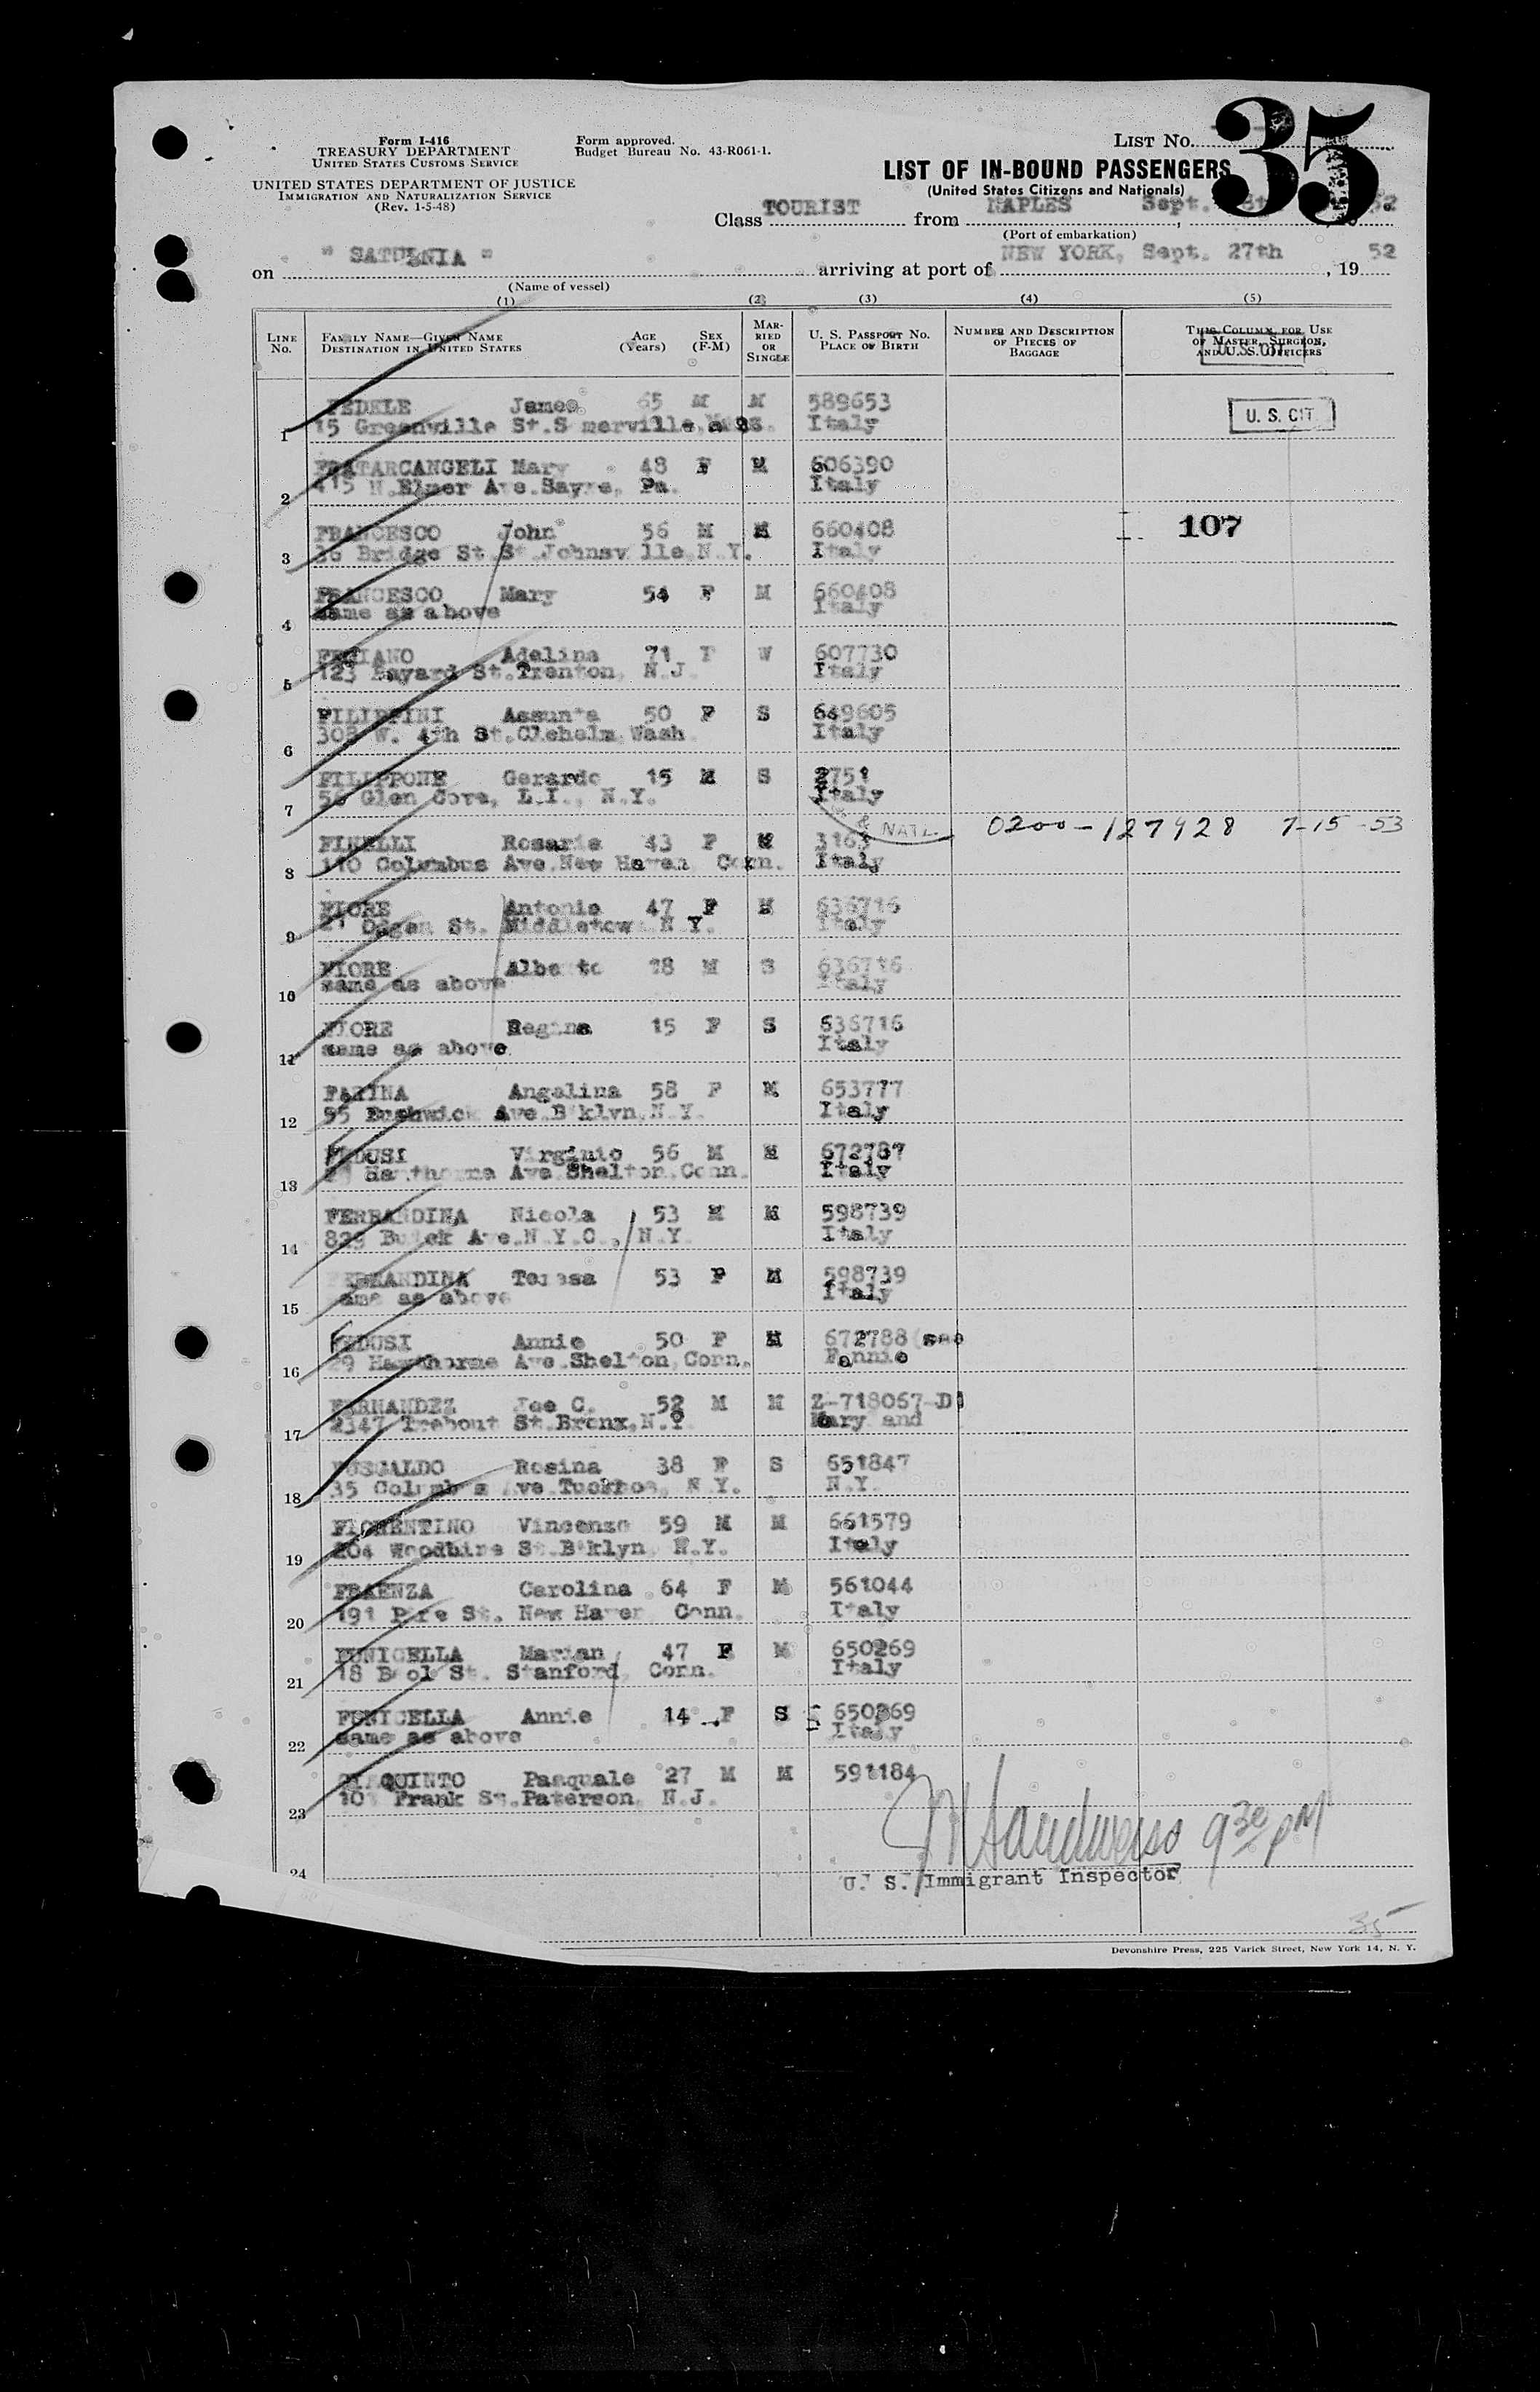 Form I-416
TREASURY DEPARTMENT
UNITED STATES CUSTOMS SERVICE
UNITED STATES DEPARTMENT OF JUSTICE
IMMIGRATION AND NATURALIZATION SERVICE
(Rev. 1-5-48)
Form approved.
Budget Bureau No. 43-R061-1.
LIST NO. 35
LIST OF IN-BOUND PASSENGERS
(United States Citizens and Nationals)
Class TOURIST from NAPLES Sept. 52
(Port of embarkation)
on " SATURNIA " arriving at port of NEW YORK, Sept. 27th, 19 52
(Name of vessel)
(1) (2) (3) (4) (5)
LINE NO.
FAMILY NAME—GIVEN NAME
DESTINATION IN UNITED STATES
AGE (Years)
SEX (F-M)
MARRIED OR SINGLE
U. S. PASSPORT NO.
PLACE OF BIRTH
NUMBER AND DESCRIPTION OF PIECES OF BAGGAGE
THIS COLUMN FOR USE OF MASTER, SURGEON, AND U. S. OFFICERS
U. S. CIT.
1 FEDELE James 65 M M 589653
15 Greenville St. Somerville, Mass. Italy
U. S. CIT.
2 FRATARCANGELI Mary 48 F M 606390
415 N. Elmer Ave. Sayre, Pa. Italy
3 FRANCESCO John 56 M M 660408
Bridge St. St. Johnsville, N.Y. Italy
107
4 FRANCESCO Mary 54 F M 660408
same as above Italy
5 Adelina 71 F W 607730
123 Bayard St. Trenton, N.J. Italy
6 FILIPPINI Assunta 50 F S 649605
308 W. 4th St. Cleholm, Wash. Italy
7 FILIPPONE Gerardo 15 M S 2751
56 Glen Cove, L.I., N.Y. Italy
NATL. 0200-127928 7-15-53
8 FINELLI Rosaria 43 F M 3163
110 Columbus Ave. New Haven, Conn. Italy
9 FIORE Antonia 47 F M 636716
St. Middletown N.Y. Italy
10 FIORE Alberto 18 M S 636716
same as above Italy
11 FIORE Regina 15 F S 636716
same as above Italy
12 FARINA Angelina 58 F M 653777
95 Bushwick Ave. B'klyn, N.Y. Italy
13 FEDUSI Virginio 56 M M 672787
29 Hawthorne Ave. Shelton, Conn. Italy
14 FERRANDINA Nicola 53 M M 598739
829 Ave. N.Y.C., N.Y. Italy
15 FERRANDINA Teresa 53 F M 598739
same as above Italy
16 FEDUSI Annie 50 F M 672788 (see
29 Hawthorne Ave. Shelton, Conn. Fannie
17 FERNANDEZ Joe C. 52 M M Z-718067-D
2347 St. Bronx, N.Y. Maryland
18 FUSCALDO Rosina 38 F S 651847
35 Columbus Ave. Tuckhoe, N.Y. N.Y.
19 FIORENTINO Vincenzo 59 M M 661579
204 Woodbine St. B'klyn, N.Y. Italy
20 FRAENZA Carolina 64 F M 561044
191 St. New Haven Conn. Italy
21 FUNICELLA Marian 47 F M 650269
18 St. Stanford, Conn. Italy
22 FUNICELLA Annie 14 F S 650269
same as above Italy
23 GIAQUINTO Pasquale 27 M M 591184
101 Frank St. Paterson, N.J.
24
9 30 PM
U. S. Immigrant Inspector
35
Devonshire Press, 225 Varick Street, New York 14, N. Y.